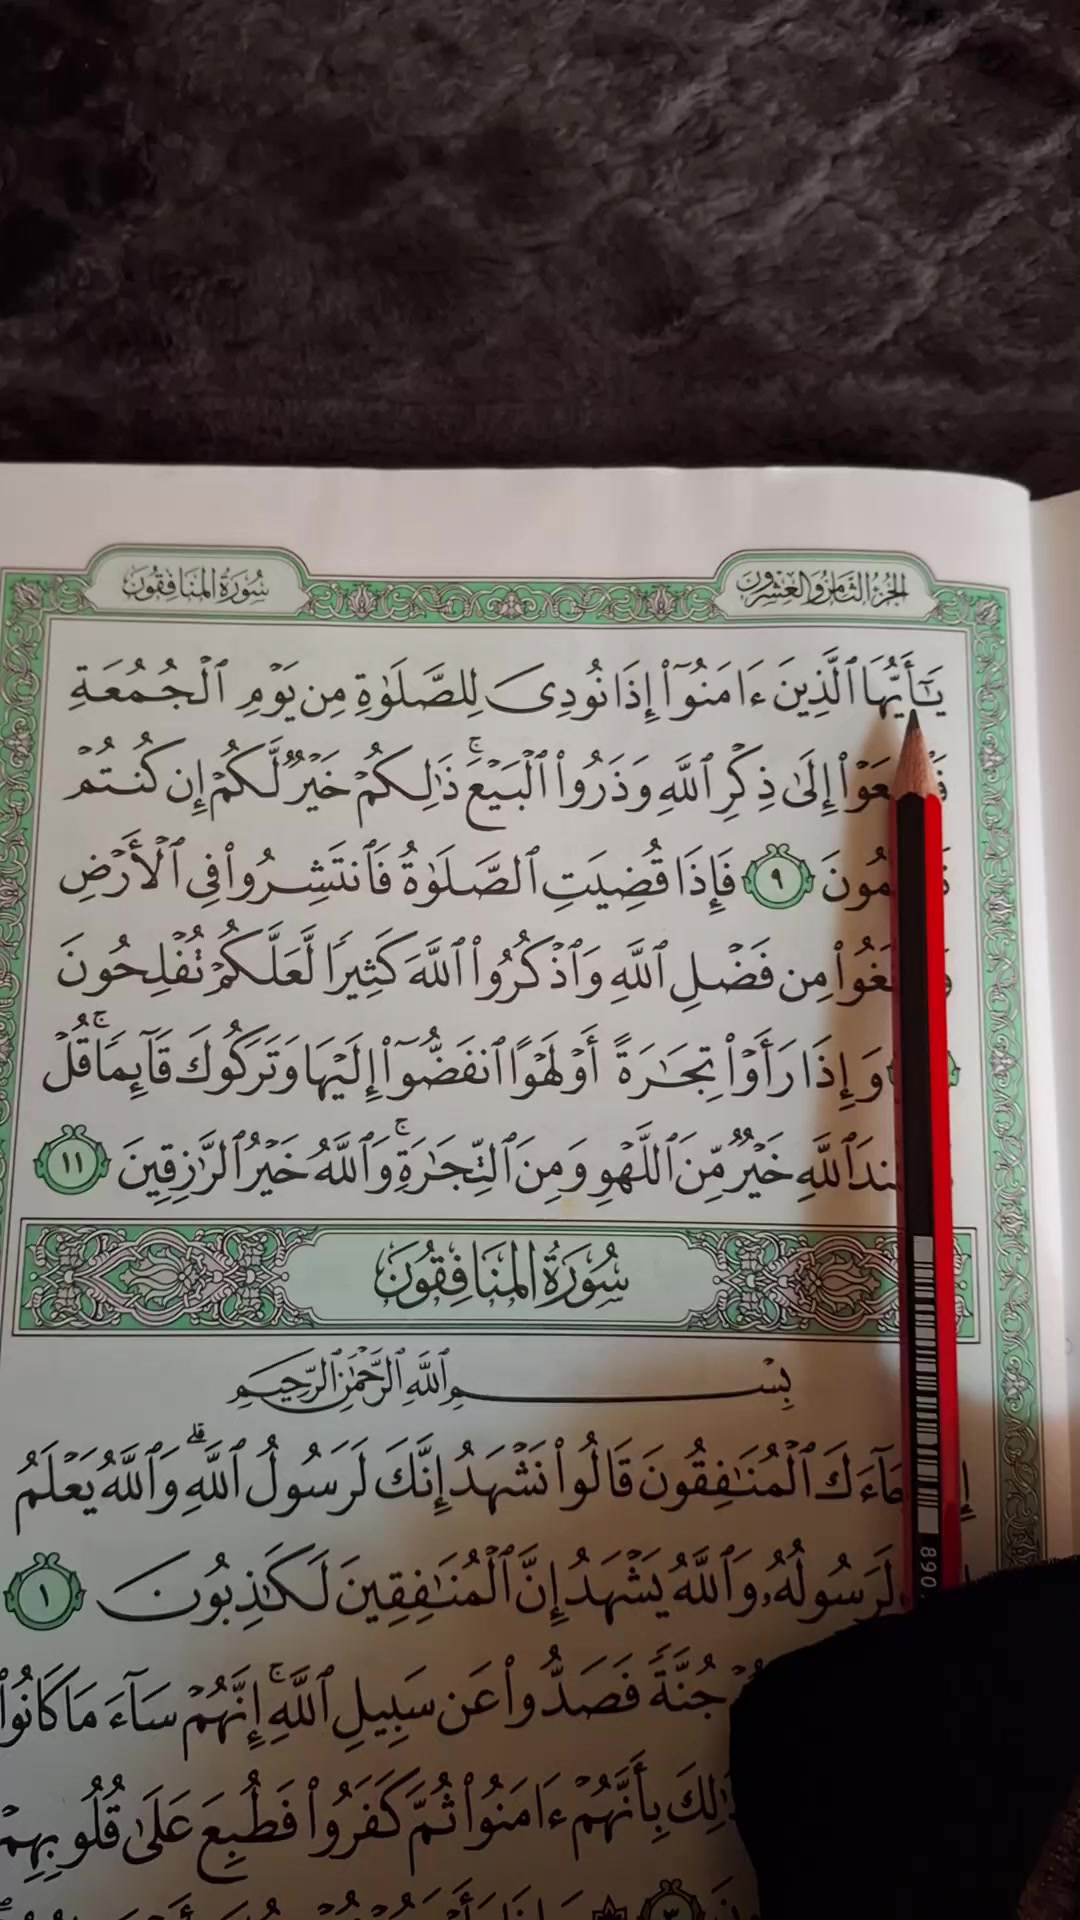 الجزء الثامن والعشرون
سورة المنافقون
يَٰٓأَيُّهَا ٱلَّذِينَ ءَامَنُوٓا۟ إِذَا نُودِىَ لِلصَّلَوٰةِ مِن يَوْمِ ٱلْجُمُعَةِ
إِلَىٰ ذِكْرِ ٱللَّهِ وَذَرُوا۟ ٱلْبَيْعَ ۚ ذَٰلِكُمْ خَيْرٌ لَّكُمْ إِن كُنتُمْ
٩ فَإِذَا قُضِيَتِ ٱلصَّلَوٰةُ فَٱنتَشِرُوا۟ فِى ٱلْأَرْضِ
مِن فَضْلِ ٱللَّهِ وَٱذْكُرُوا۟ ٱللَّهَ كَثِيرًا لَّعَلَّكُمْ تُفْلِحُونَ
وَإِذَا رَأَوْا۟ تِجَٰرَةً أَوْ لَهْوًا ٱنفَضُّوٓا۟ إِلَيْهَا وَتَرَكُوكَ قَآئِمًا ۚ قُلْ
ٱللَّهِ خَيْرٌ مِّنَ ٱللَّهْوِ وَمِنَ ٱلتِّجَٰرَةِ ۚ وَٱللَّهُ خَيْرُ ٱلرَّٰزِقِينَ ١١
سُورَةُ المنَافِقُونَ
بِسْمِ ٱللَّهِ ٱلرَّحْمَٰنِ ٱلرَّحِيمِ
ٱلْمُنَٰفِقُونَ قَالُوا۟ نَشْهَدُ إِنَّكَ لَرَسُولُ ٱللَّهِ ۗ وَٱللَّهُ يَعْلَمُ
لَرَسُولُهُۥ وَٱللَّهُ يَشْهَدُ إِنَّ ٱلْمُنَٰفِقِينَ لَكَٰذِبُونَ ١
جُنَّةً فَصَدُّوا۟ عَن سَبِيلِ ٱللَّهِ ۚ إِنَّهُمْ سَآءَ مَا كَانُوا۟
ذَٰلِكَ بِأَنَّهُمْ ءَامَنُوا۟ ثُمَّ كَفَرُوا۟ فَطُبِعَ عَلَىٰ قُلُوبِهِمْ
٣
098